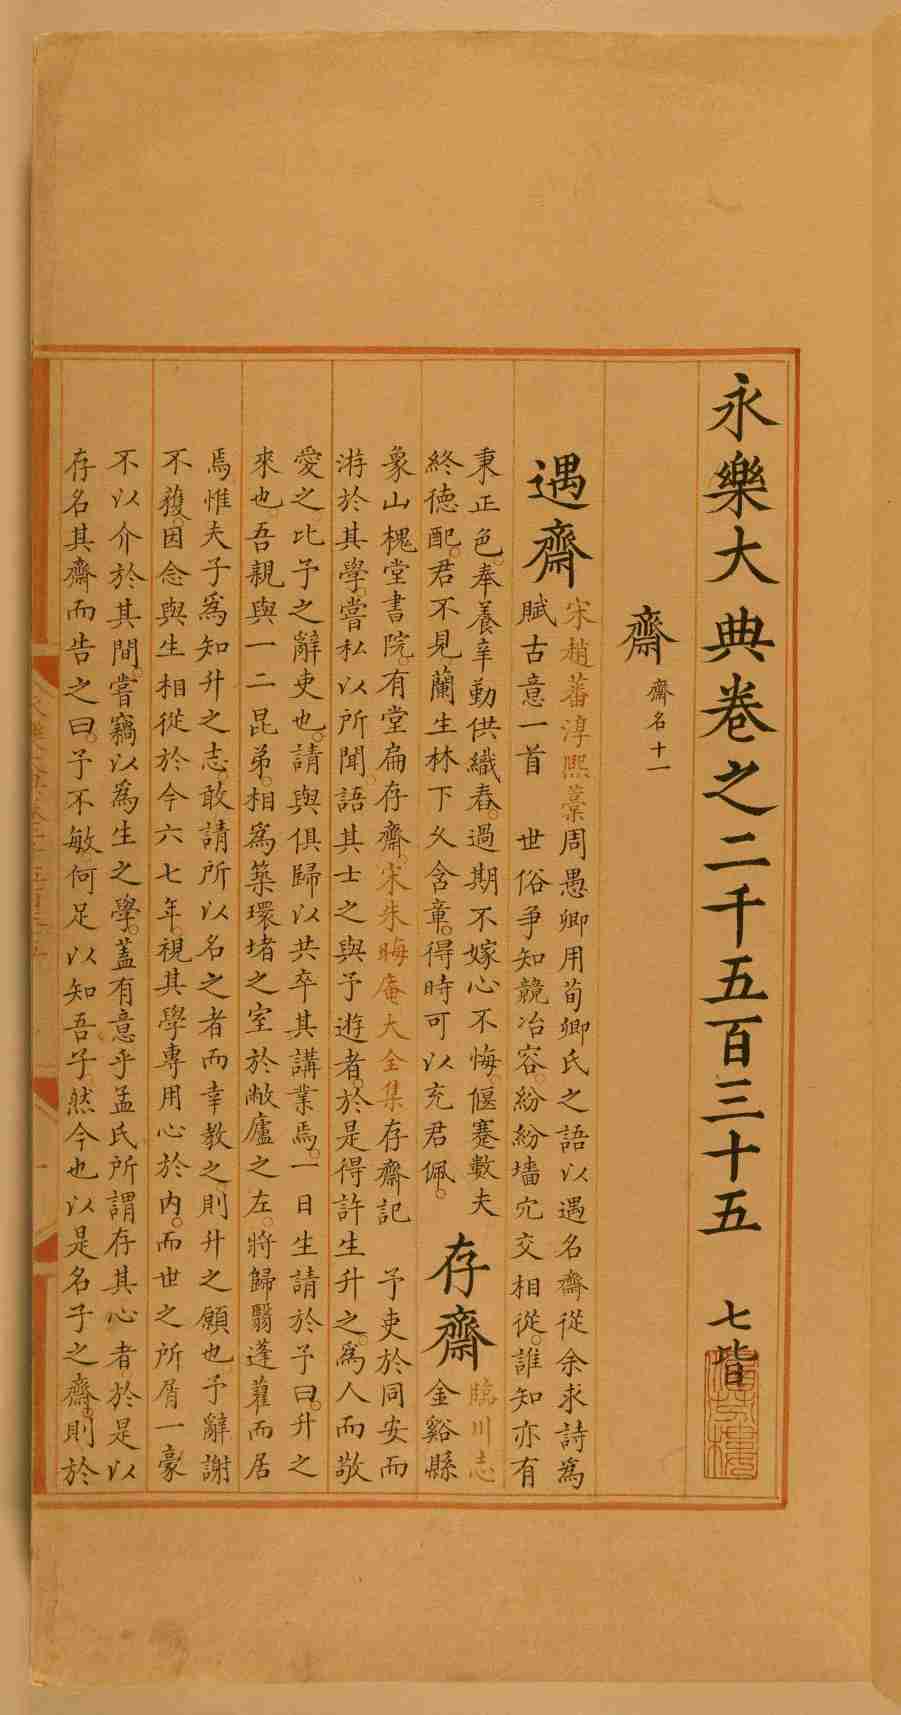 永樂大典卷之二千五百三十五 七皆
涵芬樓
齋 齋名十一
遇齋 宋趙蕃淳熙藁周愚卿用荀卿氏之語以遇名齋從余求詩爲
賦古意一首 世俗争知競冶容。紛紛墻穴交相從。誰知亦有
秉正色。奉養辛勤供織舂。過期不嫁心不悔。偃蹇數夫
終德配。君不見。蘭生林下久含章。得時可以充君佩。
存齋 臨川志
金谿縣
象山槐堂書院。有堂扁存齋。宋朱晦庵大全集存齋記 予吏於同安而
游於其學。嘗私以所聞。語其士之與予遊者。於是得許生升之。爲人而敬
愛之比予之辭吏也。請與俱歸以共卒其講業焉。一日生請於予曰。升之
來也。吾親與一二昆弟。相爲築環堵之室於敝廬之左。將歸翳蓬藋而居
焉惟夫子爲知升之志。敢請所以名之者而幸教之。則升之願也。予辭謝
不獲。因念與生相從於今六七年。視其學專用心於内。而世之所屑一豪
不以介於其間。嘗竊以爲生之學。蓋有意乎孟氏所謂存其心者。於是以
存名其齋而告之曰。予不敏。何足以知吾子。然今也以是名子之齋。則於